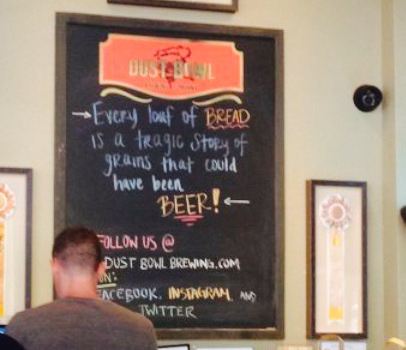 DUST BOWL
Every loaf of BREAD
is a tragic story of
grains that could
have been
BEER!
FOLLOW US @
DUST BOWL BREWING.COM
ON:
FACEBOOK, INSTAGRAM, AND
TWITTER